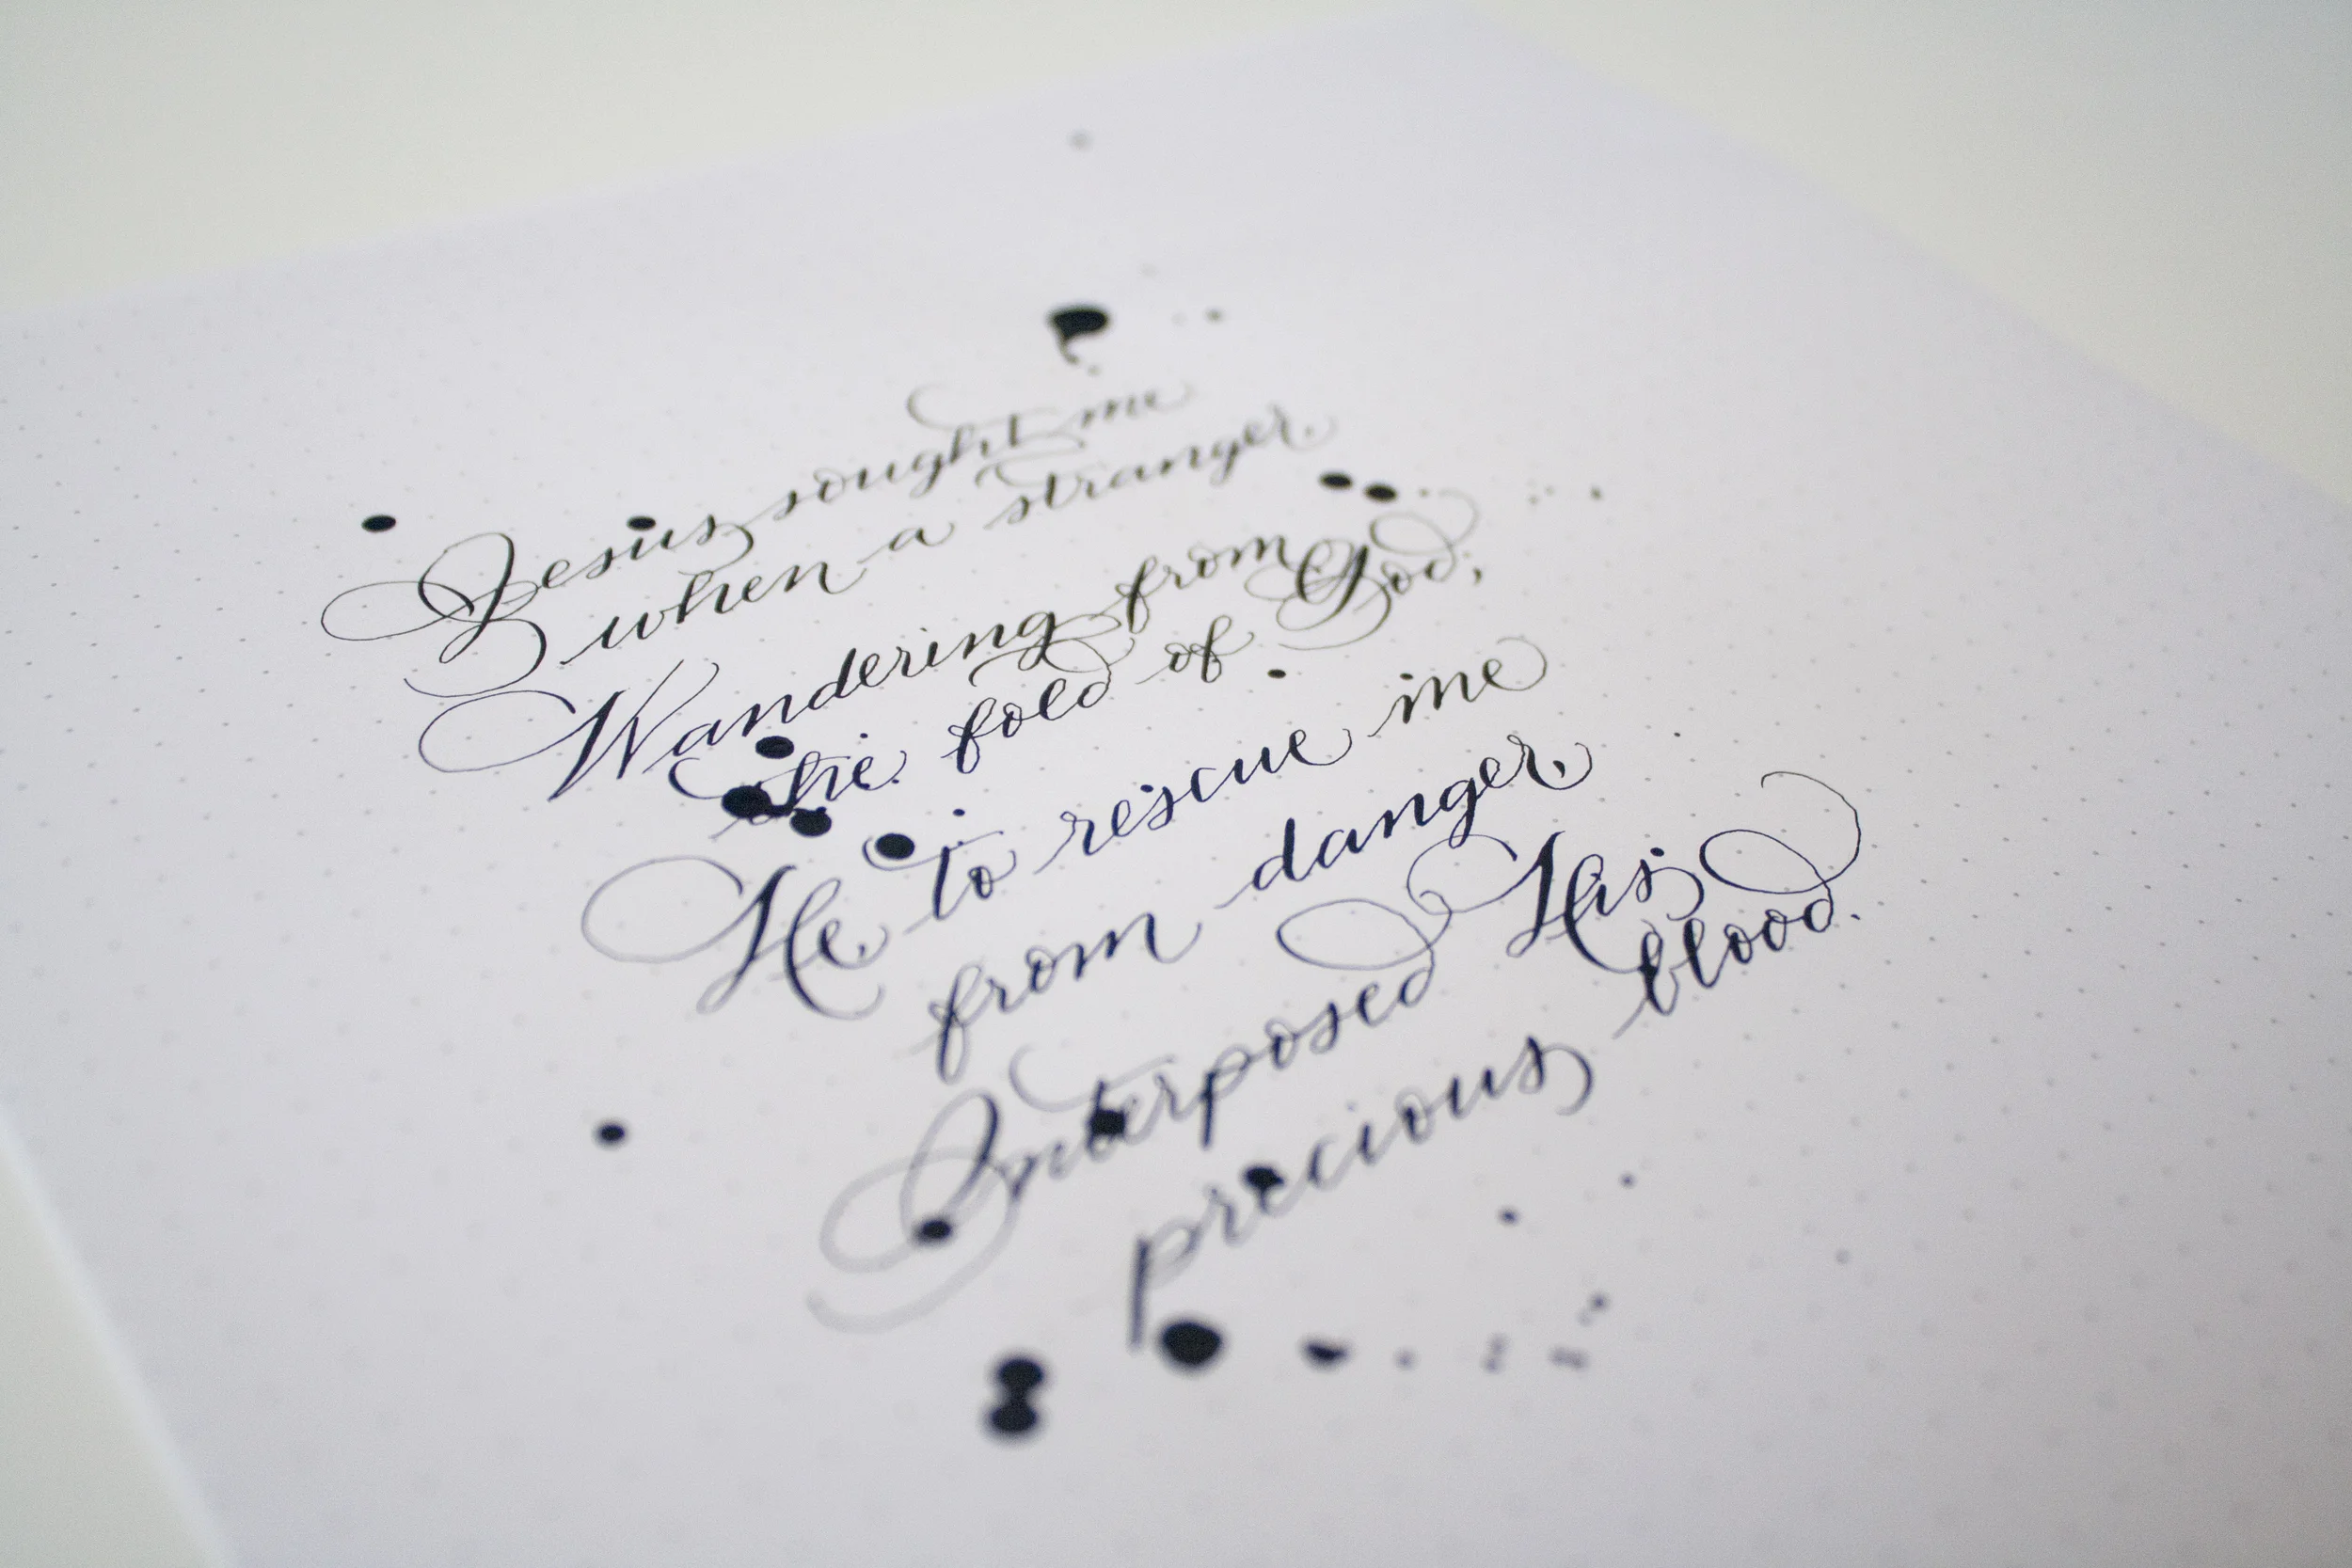 Jesus sought me
when a stranger,
Wandering from
the fold of God;
He, to rescue me
from danger,
Interposed His
precious blood.